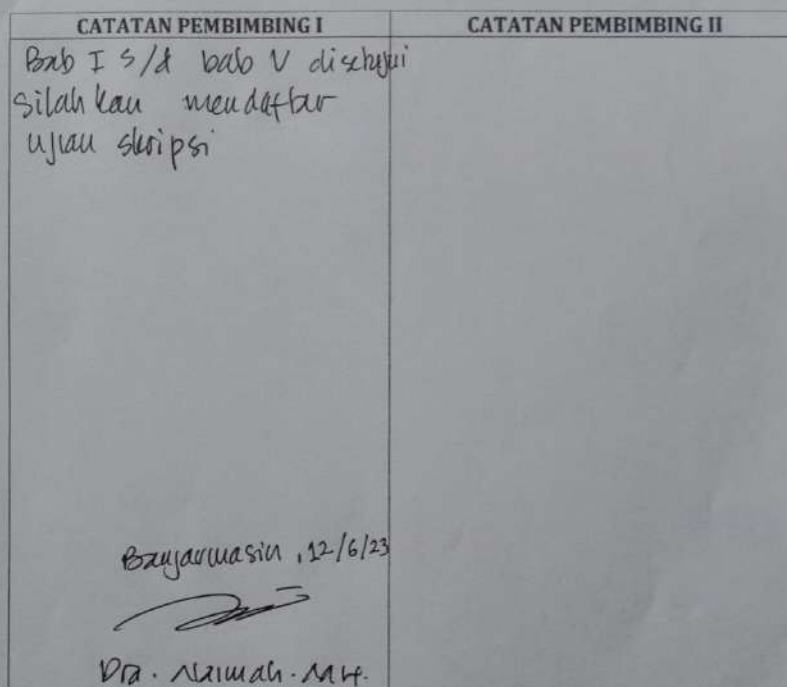 CATATAN PEMBIMBING I
CATATAN PEMBIMBING II
Bab I s/d bab V disetujui
Silahkan mendaftar
ujian skripsi
Banjarmasin, 12/6/23
Dra. Naimah.